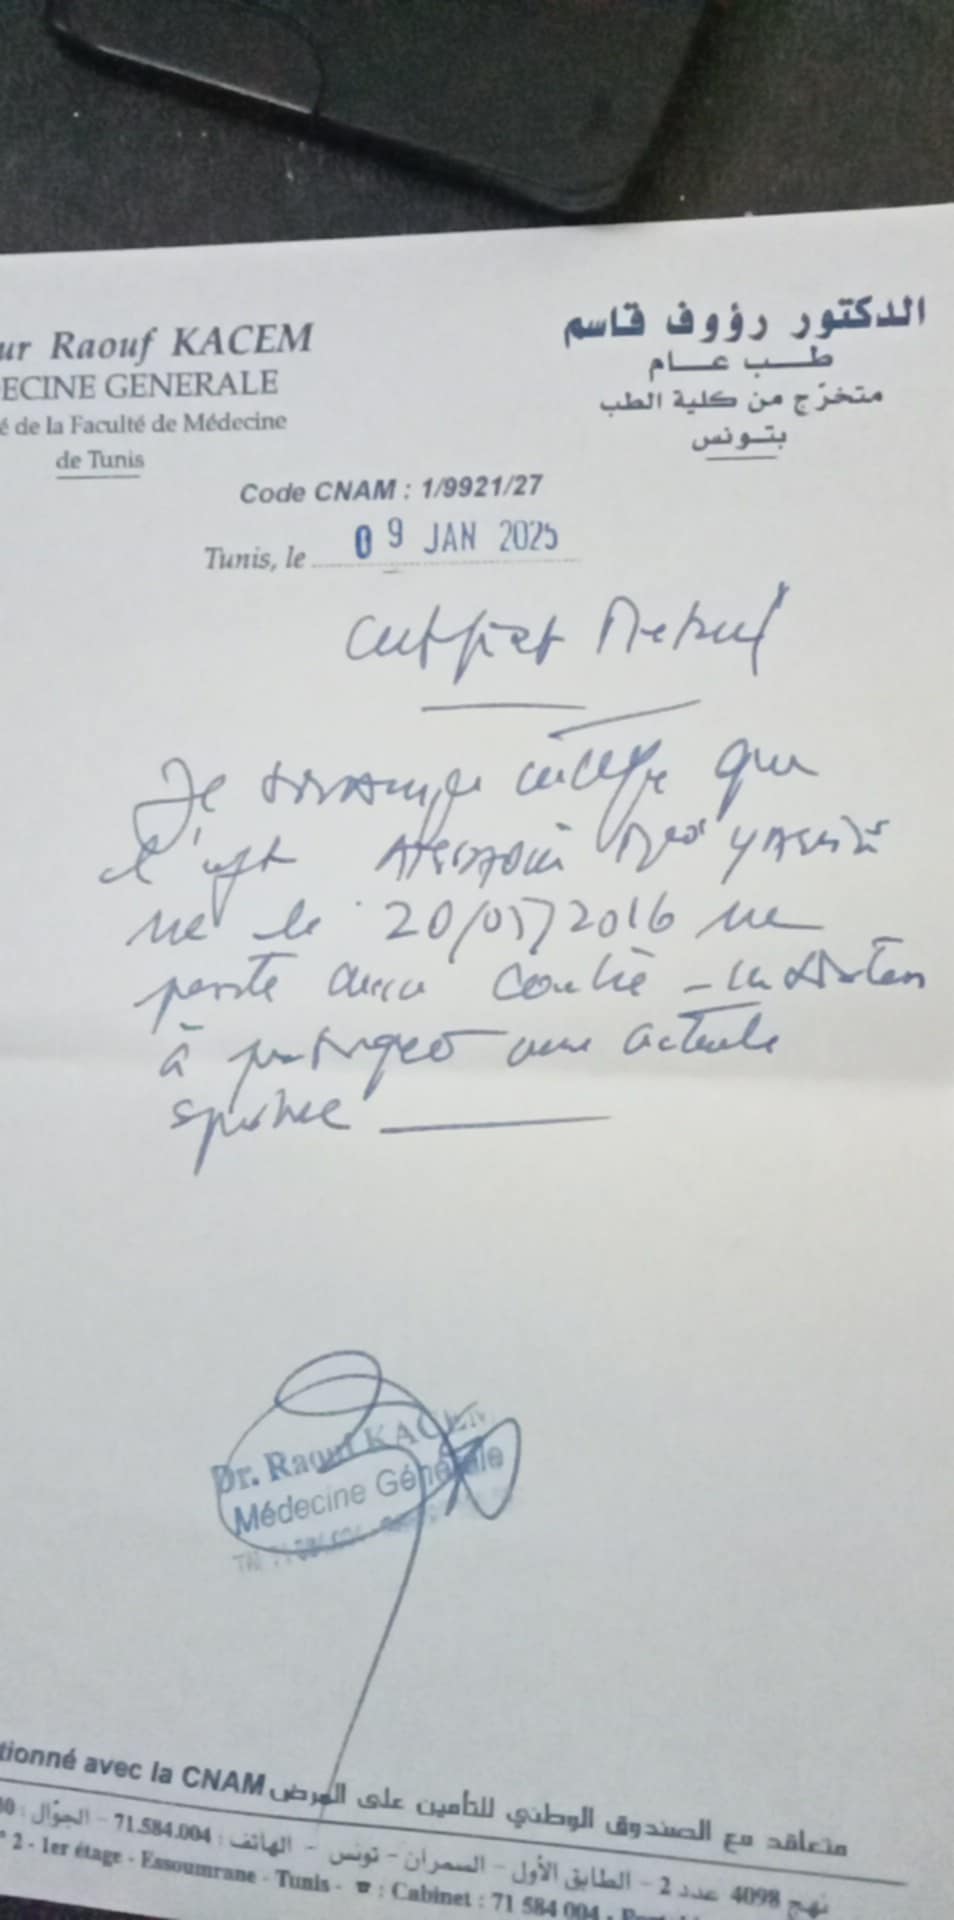 ur Raouf KACEM
ECINE GENERALE
é de la Faculté de Médecine
de Tunis
الدكتور رؤوف قاسم
طب عام
متخرّج من كلية الطب
بتونس
Code CNAM : 1/9921/27
Tunis, le 09 JAN 2025
Certificat Medical
Je soussigné certifie que
l'enft
né le 20/05/2016 ne
présente aucune contre-indication
à pratiquer une activité
sportive
Dr. Raouf KACEM
Médecine Générale
tionné avec la CNAM متعاقد مع الصندوق الوطني للتأمين على المرض
نهج 4098 عدد 2 - الطابق الأول - السمران - تونس - الهاتف : 71.584.004 - الجوّال :
2 - 1er étage - Essoumrane - Tunis - ☎ : Cabinet : 71 584 004 -